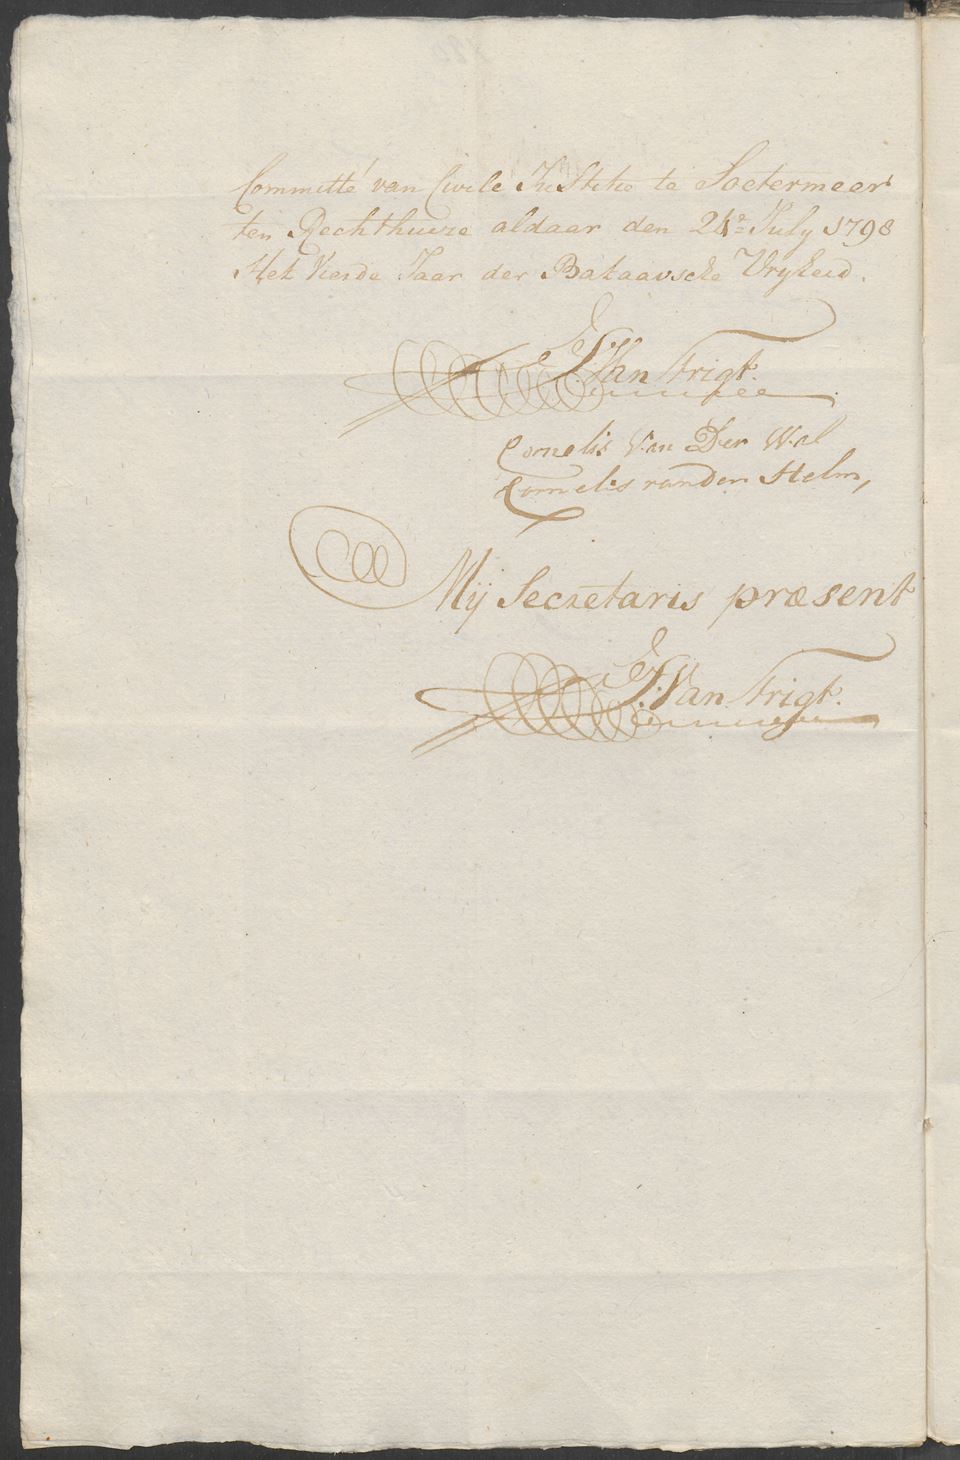 Committé van Civile Justitie te Soetermeer
ten Rechthuize aldaar den 24e July 1798
Het Vierde Jaar der Bataavsche Vryheid.
Van Trigt.
Cornelis Van Der Wal
Cornelis van den Helm,
Mij Secretaris præsent
Van Trigt.